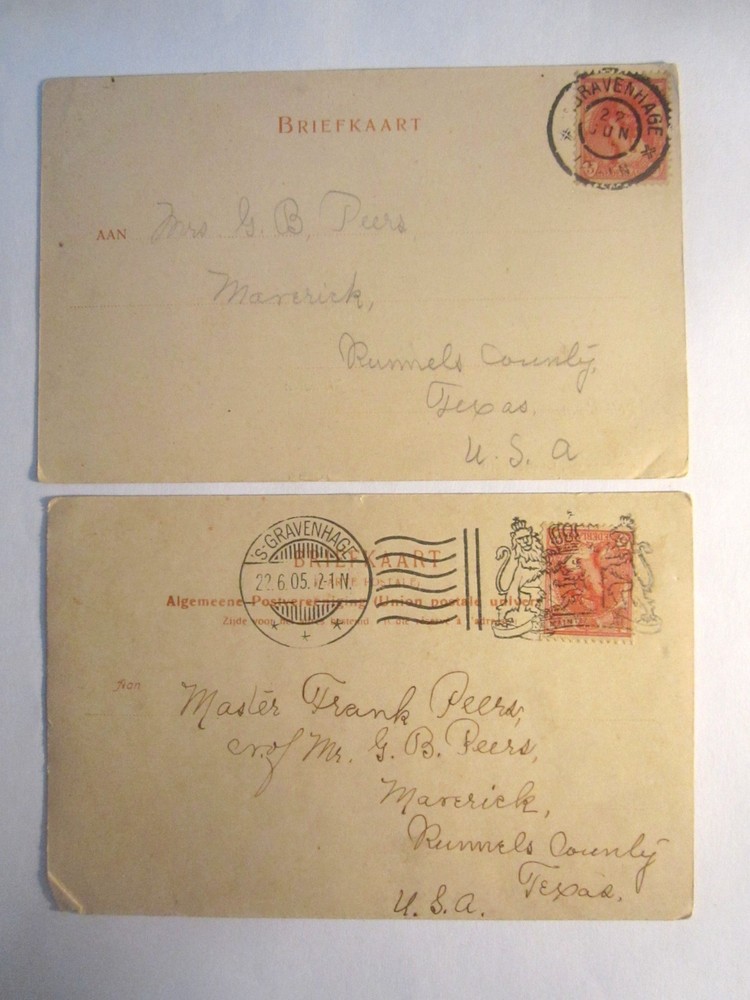 BRIEFKAART
'S GRAVENHAGE
22
JUN
AAN Mrs G. B. Peers
Maverick,
Runnels County,
Texas.
U. S. A
'S-GRAVENHAGE
22.6.05.12-1N.
BRIEFKAART
Algemeene Postvereeniging (Union postale univer
Zijde voor
Aan
Master Frank Peers,
c/o of Mr. G. B. Peers,
Maverick,
Runnels County
Texas.
U. S. A.